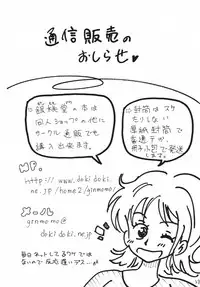 通信販売の
おしらせ♥
銀桃堂の本は
同人ショップの他に
サークル通販でも
購入出来ます。
封筒はスケ
たりしない
厚紙封筒で
普通or
冊子小包で発送し
ます。
HP.
http://www.dokidoki.
ne.jp/home2/ginmomo/
メール
ginmomo@
dokidoki.ne.jp
毎日ネットしてるワケでは
ないので反応遅いデス…